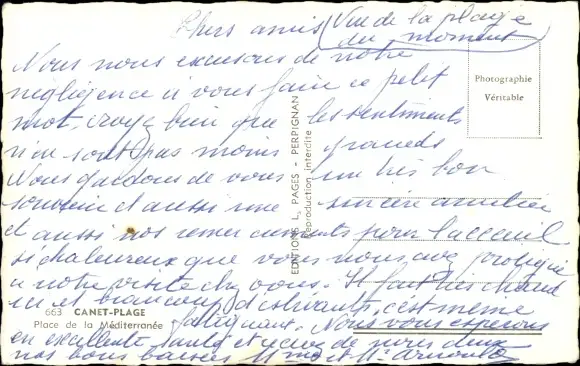 Chers amis
Vue de la plage
du moment
Nous nous excusons de notre
négligence à vous faire ce petit
mot, croyez bien que les sentiments
n'en sont pas moins grands
Nous gardons de vous un très bon
souvenir et aussi une sincère
et aussi nos remerciements pour l'accueil
si chaleureux que vous nous avez
à notre visite chez vous. Il fait très chaud
ici et beaucoup d'estivants, c'est même
fatiguant. Nous vous espérons
en excellente santé et recevez de nous deux
nos bons baisers Mme et Mr
Photographie
Véritable
EDITIONS L. PAGES - PERPIGNAN
Reproduction interdite
663 CANET-PLAGE
Place de la Méditerranée